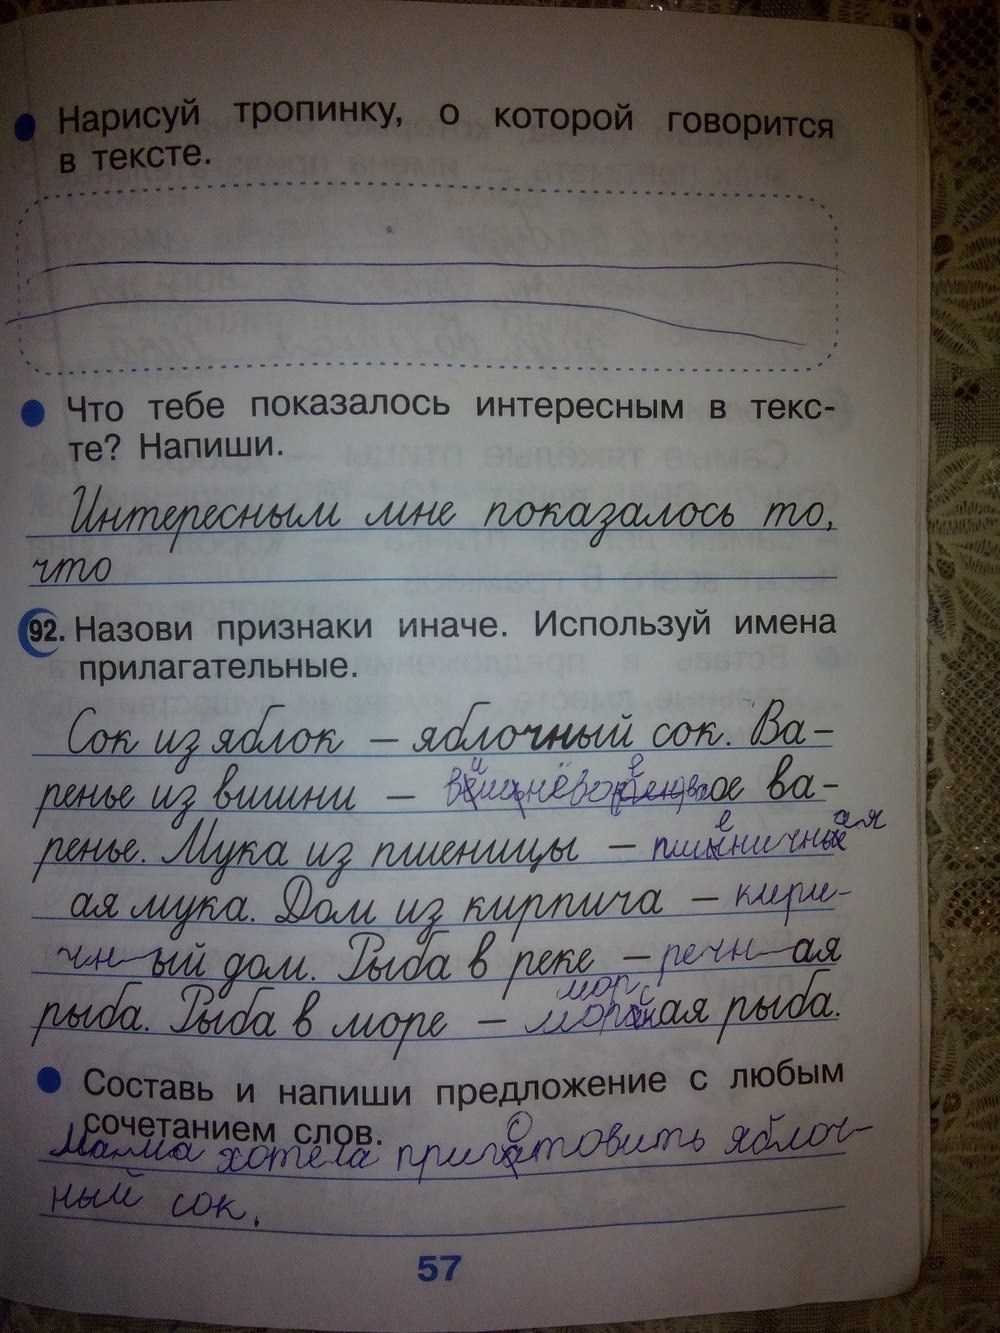 Нарисуй тропинку, о которой говорится
в тексте.
Что тебе показалось интересным в текс-
те? Напиши.
Интересным мне показалось то,
что
92. Назови признаки иначе. Используй имена
прилагательные.
Сок из яблок – яблочный сок. Ва-
ренье из вишни – ое ва-
ренье. Мука из пшеницы – пшеничная
ая мука. Дом из кирпича – кирпи-
чный дом. Рыба в реке – речная
рыба. Рыба в море – морская рыба.
Составь и напиши предложение с любым
сочетанием слов.
Мама хотела приготовить яблоч-
ный сок.
57